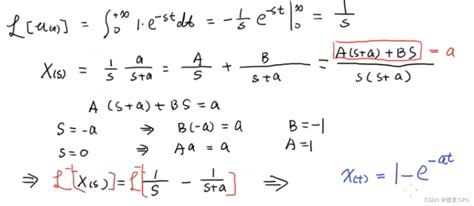 ℒ[u(t)] = ∫₀^{+∞} 1·e^{-st}dt = -1/s e^{-st}|₀^{+∞} = 1/s
X(s) = 1/s a/(s+a) = A/S + B/(s+a) = (A(s+a)+BS)/(s(s+a)) = a
A(s+a)+BS = a
S=-a ⇒ B(-a) = a B=-1
s=0 ⇒ Aa = a A=1
⇒ ℒ⁻¹[X(s)] = ℒ⁻¹[1/s - 1/(s+a)] x(t) = 1-e^{-at}